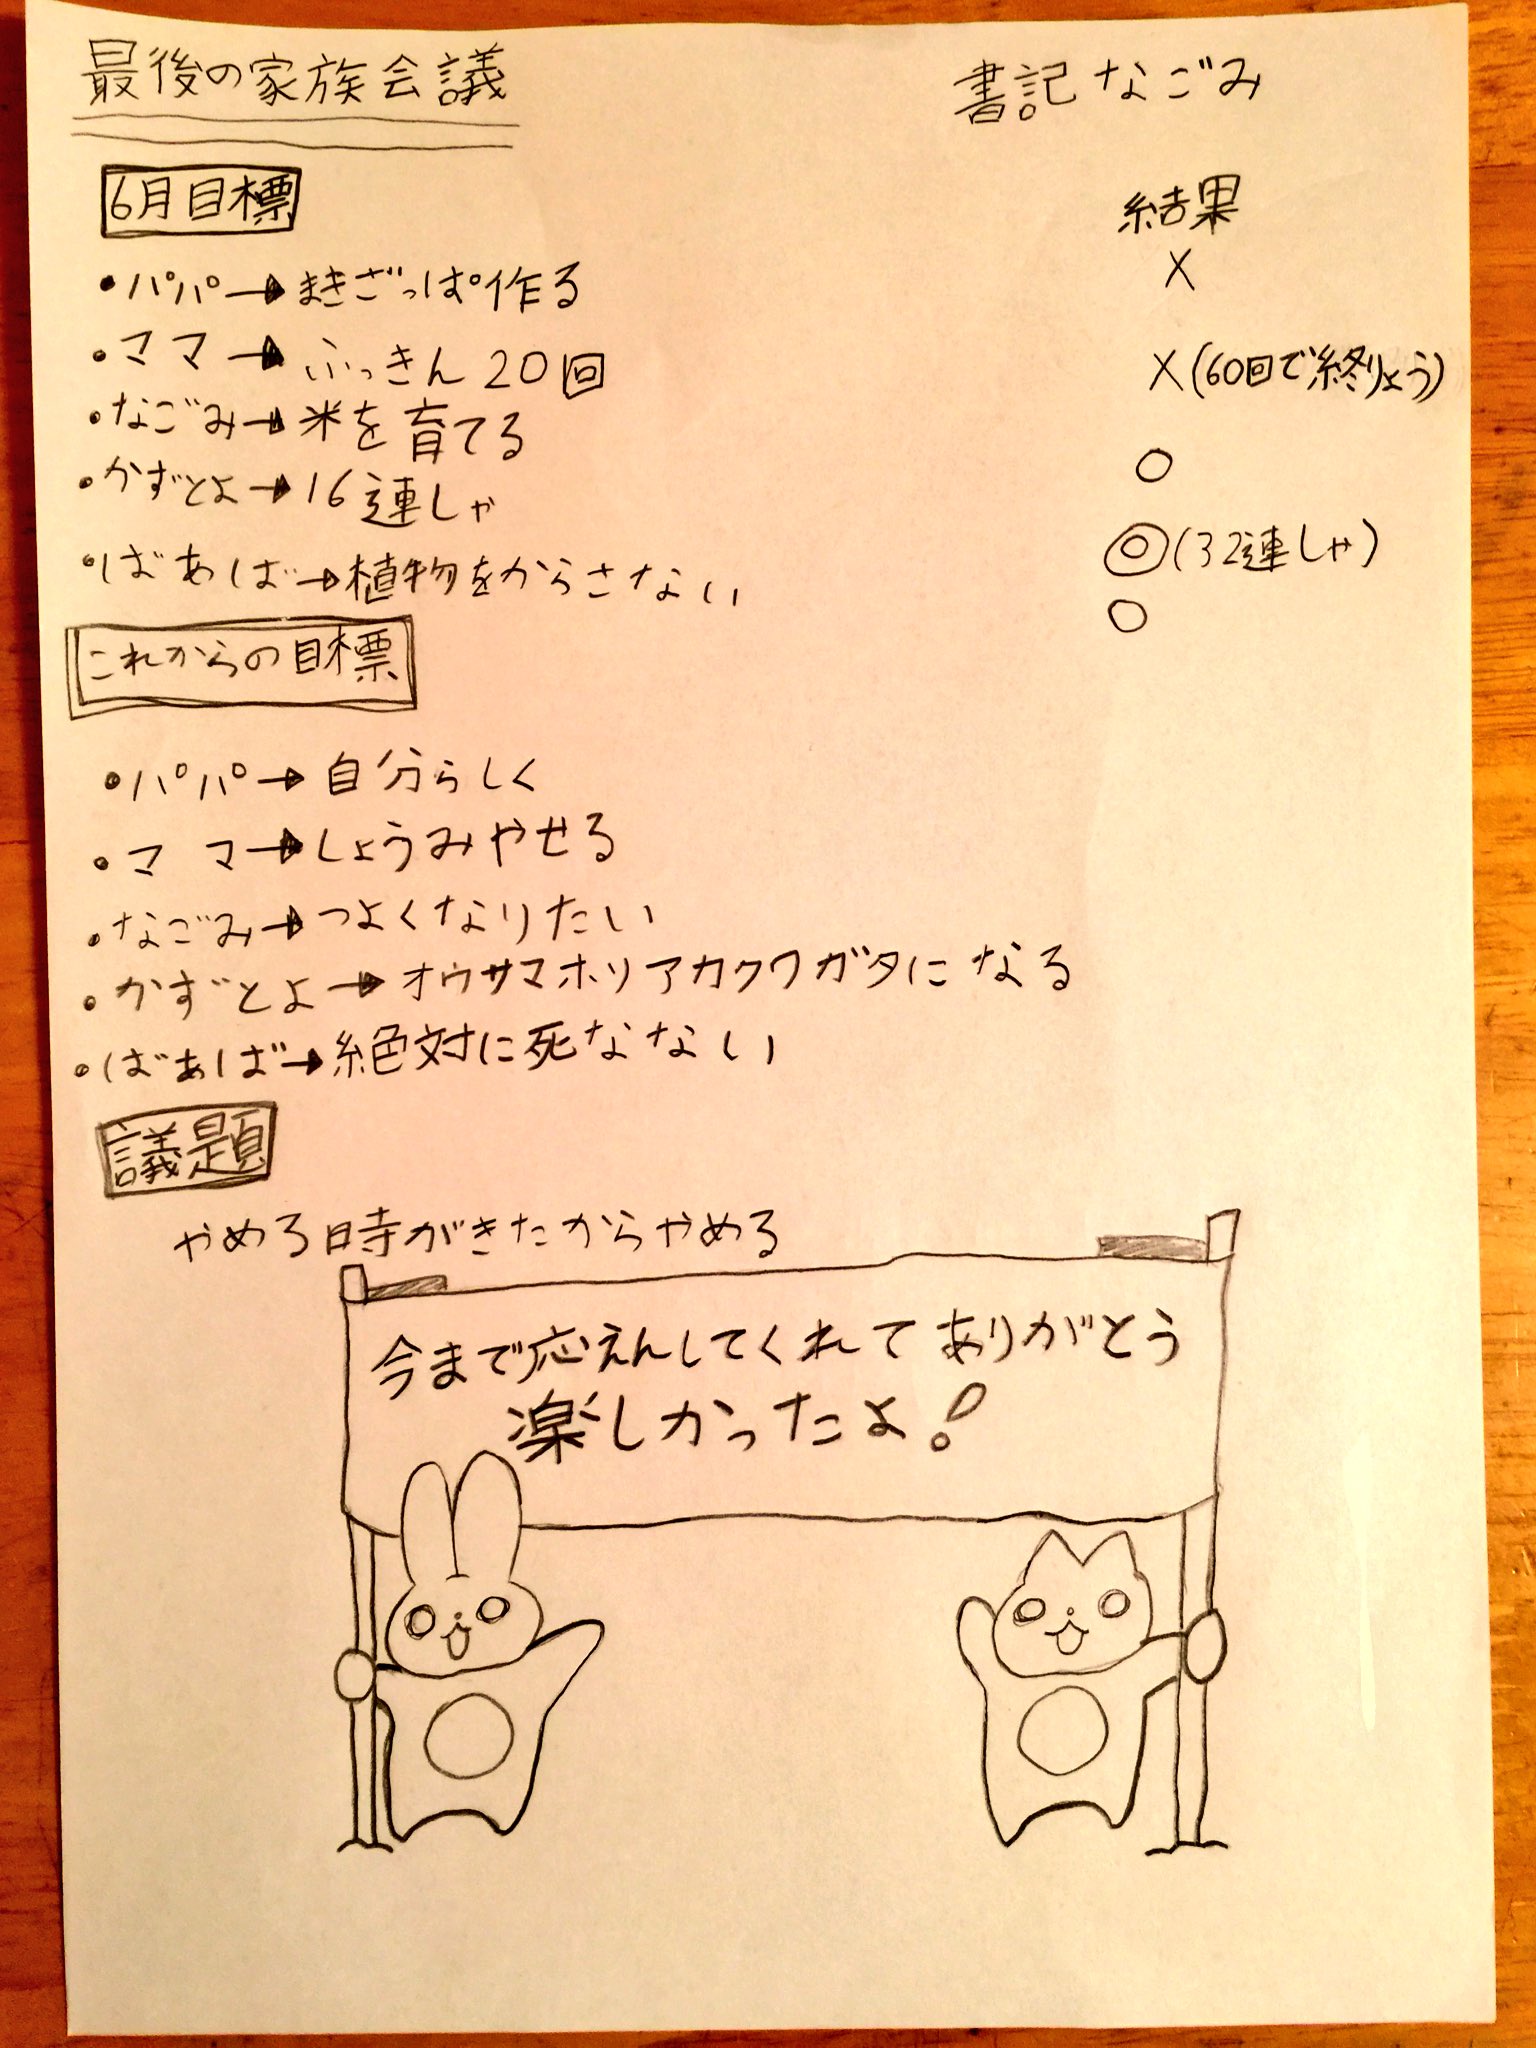 最後の家族会議
書記 なごみ
6月目標
結果
・パパ→まきざっぱ作る
X
・ママ→ふっきん20回
X(60回で終りょう)
・なごみ→米を育てる
○
・かずとよ→16連しゃ
◎(32連しゃ)
・ばあば→植物をからさない
○
これからの目標
・パパ→自分らしく
・ママ→しょうみやせる
・なごみ→つよくなりたい
・かずとよ→オウサマホリアカクワガタになる
・ばあば→絶対に死なない
議題
やめる時がきたからやめる
今まで応えんしてくれてありがとう
楽しかったよ!